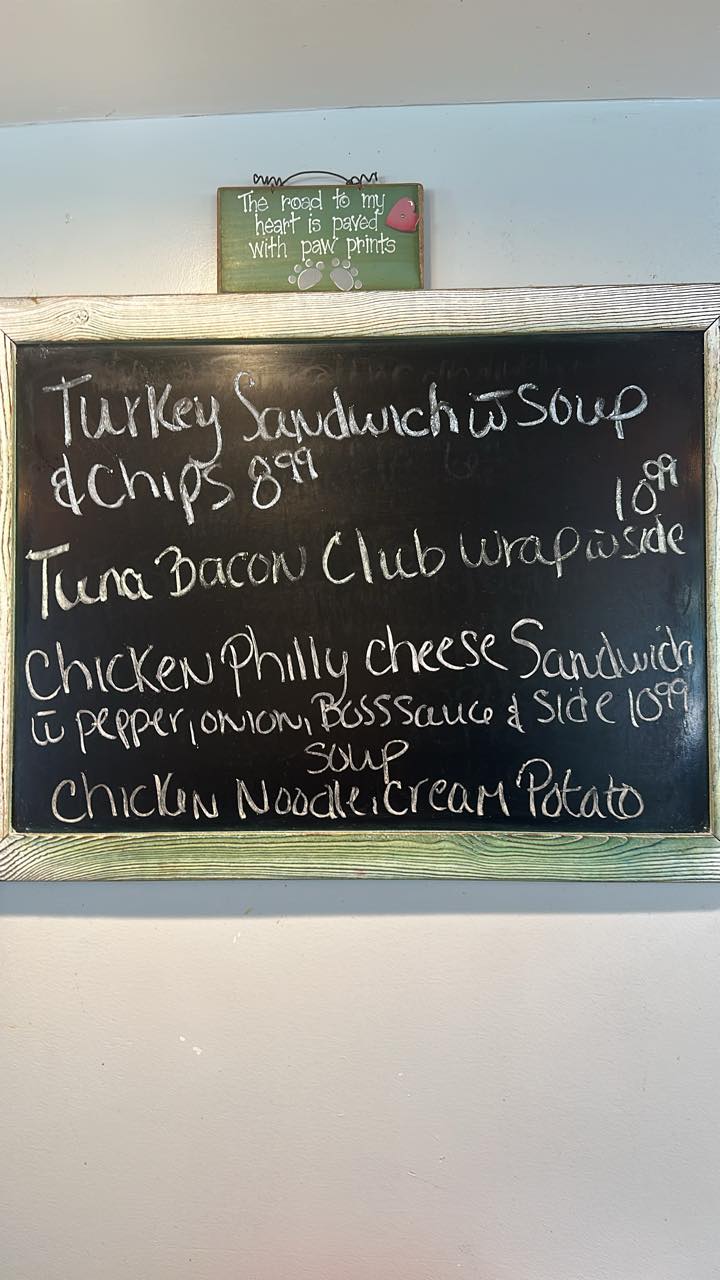 The road to my
heart is paved
with paw prints
Turkey Sandwich w̅ Soup
& Chips 8⁹⁹
10⁹⁹
Tuna Bacon Club Wrap w̅ side
Chicken Philly cheese Sandwich
w̅ pepper, onion, Boss Sauce & Side 10⁹⁹
soup
Chicken Noodle, Cream Potato